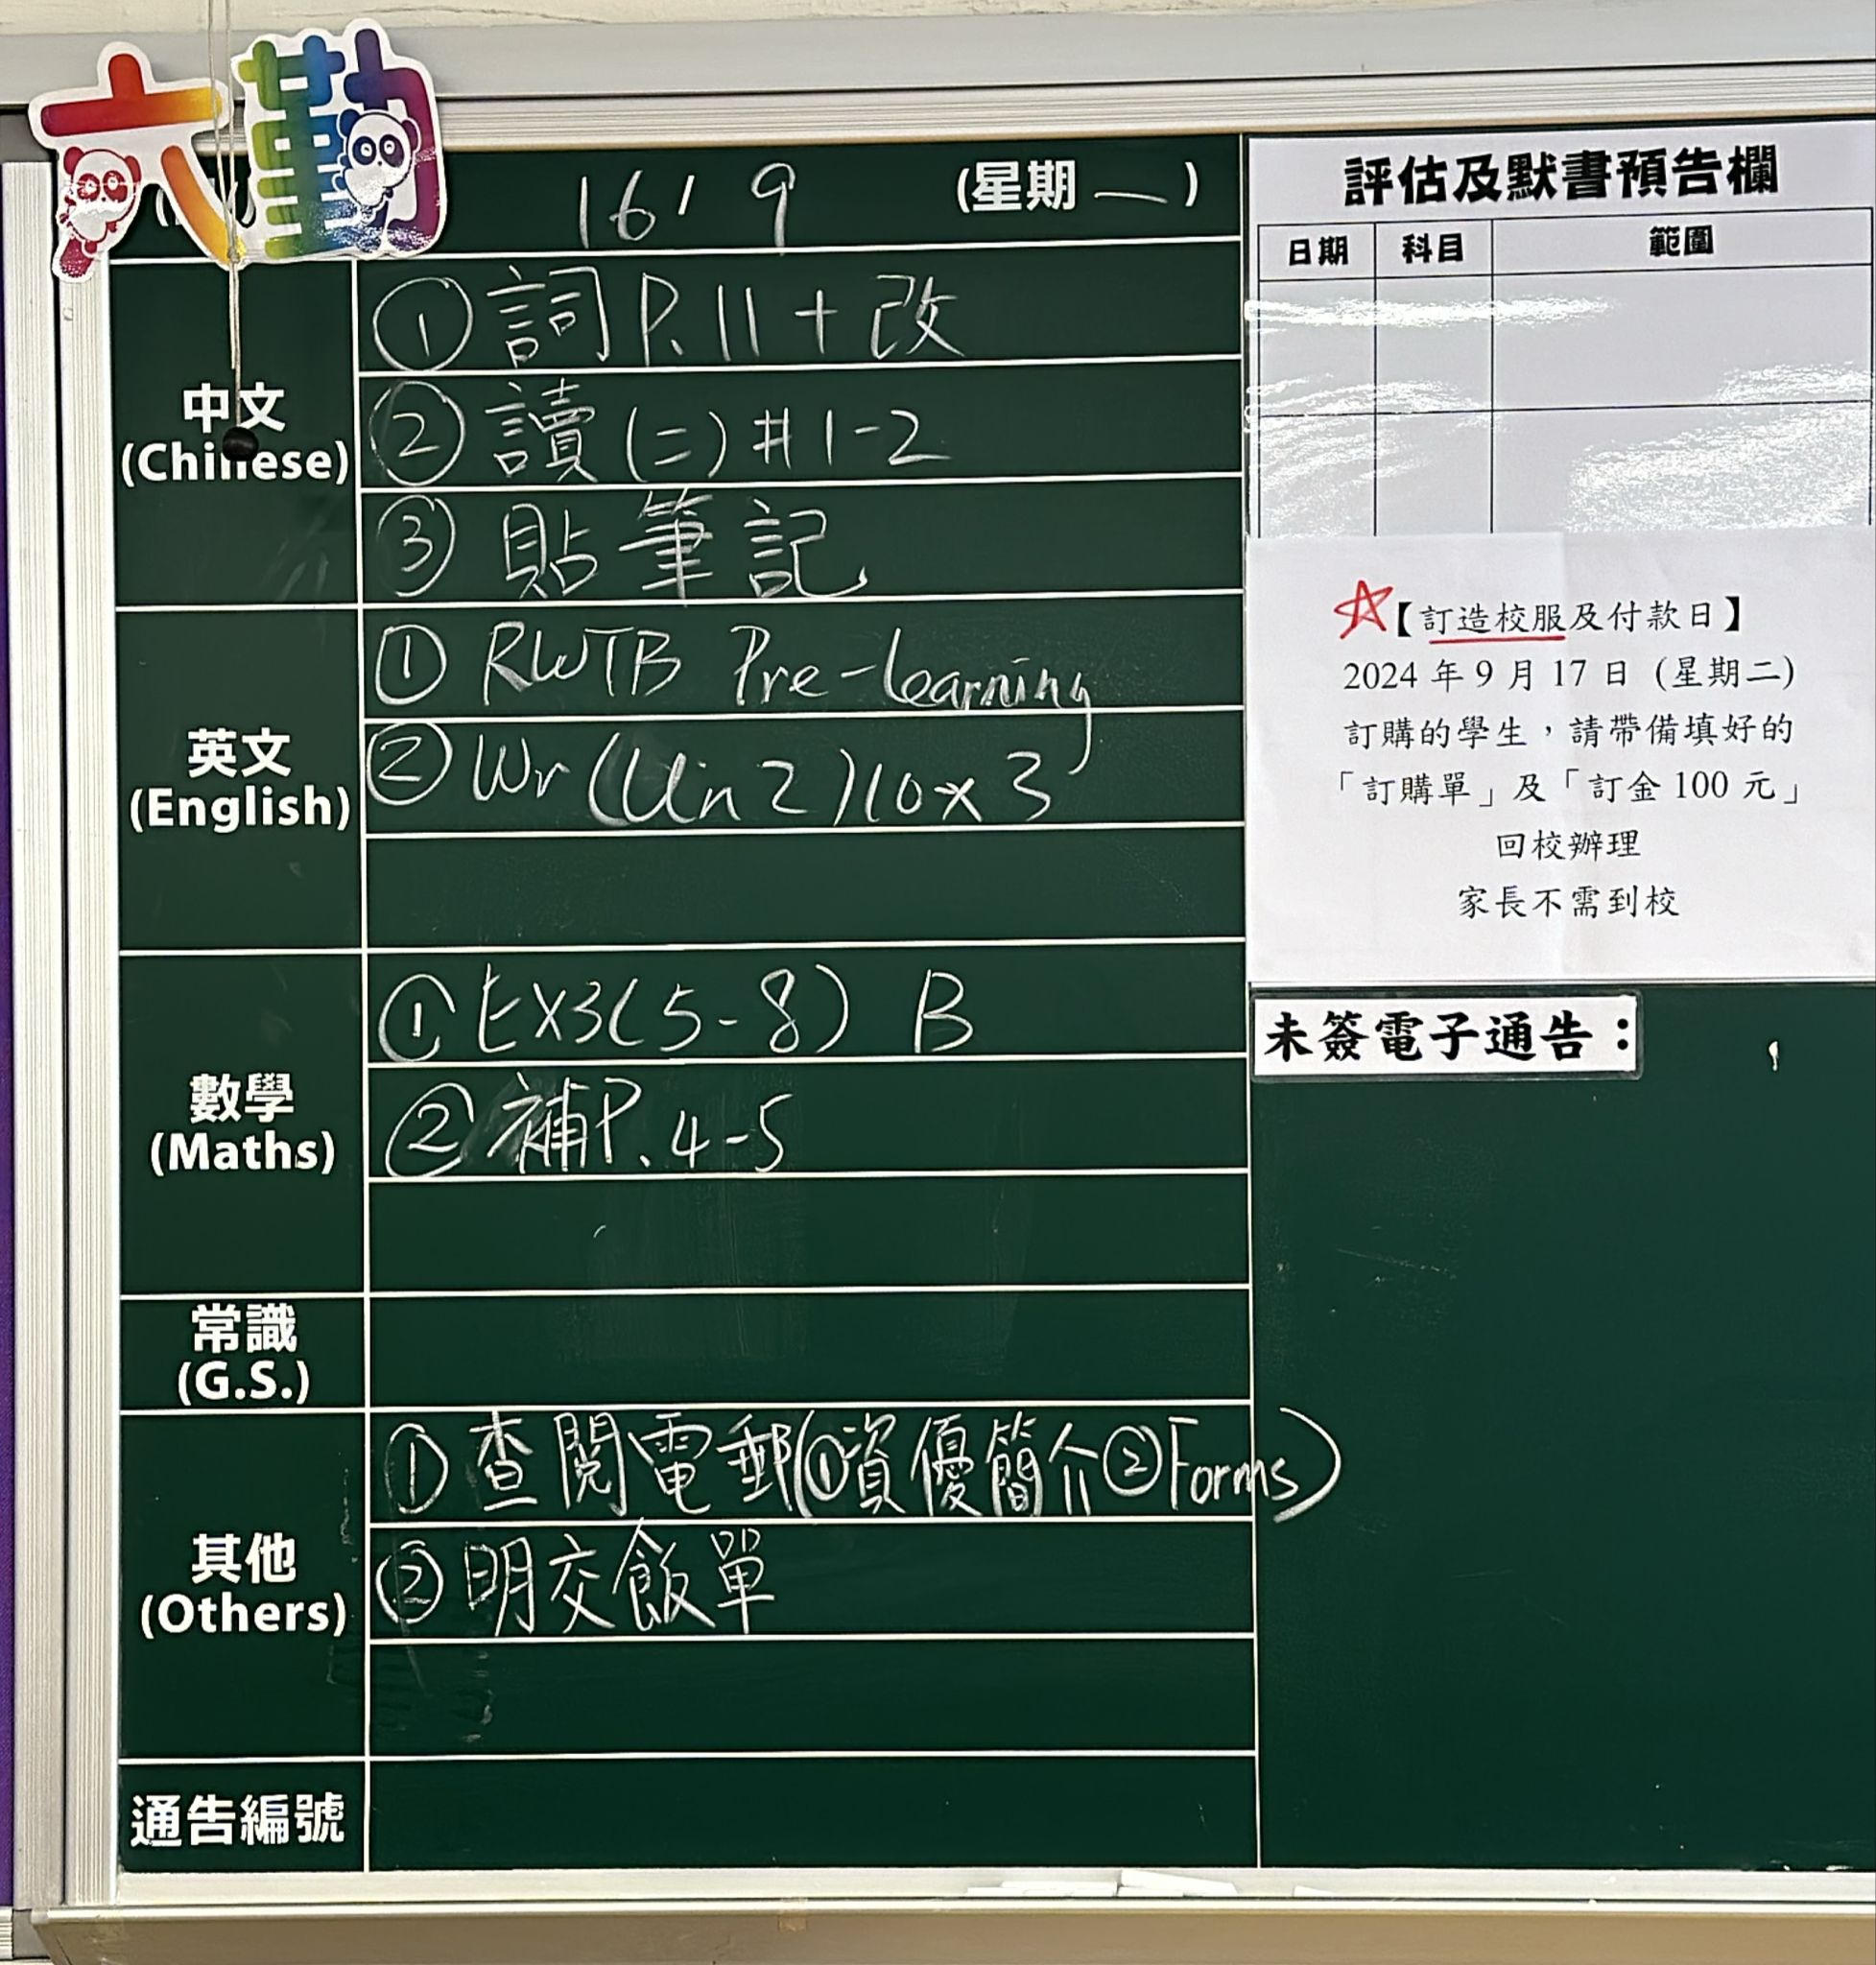 六勤
16/9 (星期一)
中文
(Chinese)
① 詞 P.11 + 改
② 讀 (二) #1-2
③ 貼筆記
英文
(English)
① RWTB Pre-learning
② Wr (Un 2) 10 x 3
數學
(Maths)
① Ex3(5-8) B
② 補P.4-5
常識
(G.S.)
其他
(Others)
① 查閱電郵(①資優簡介②Forms)
② 明交飯單
通告編號
評估及默書預告欄
日期 科目 範圍
☆【訂造校服及付款日】
2024 年 9 月 17 日 (星期二)
訂購的學生，請帶備填好的
「訂購單」及「訂金 100 元」
回校辦理
家長不需到校
未簽電子通告：